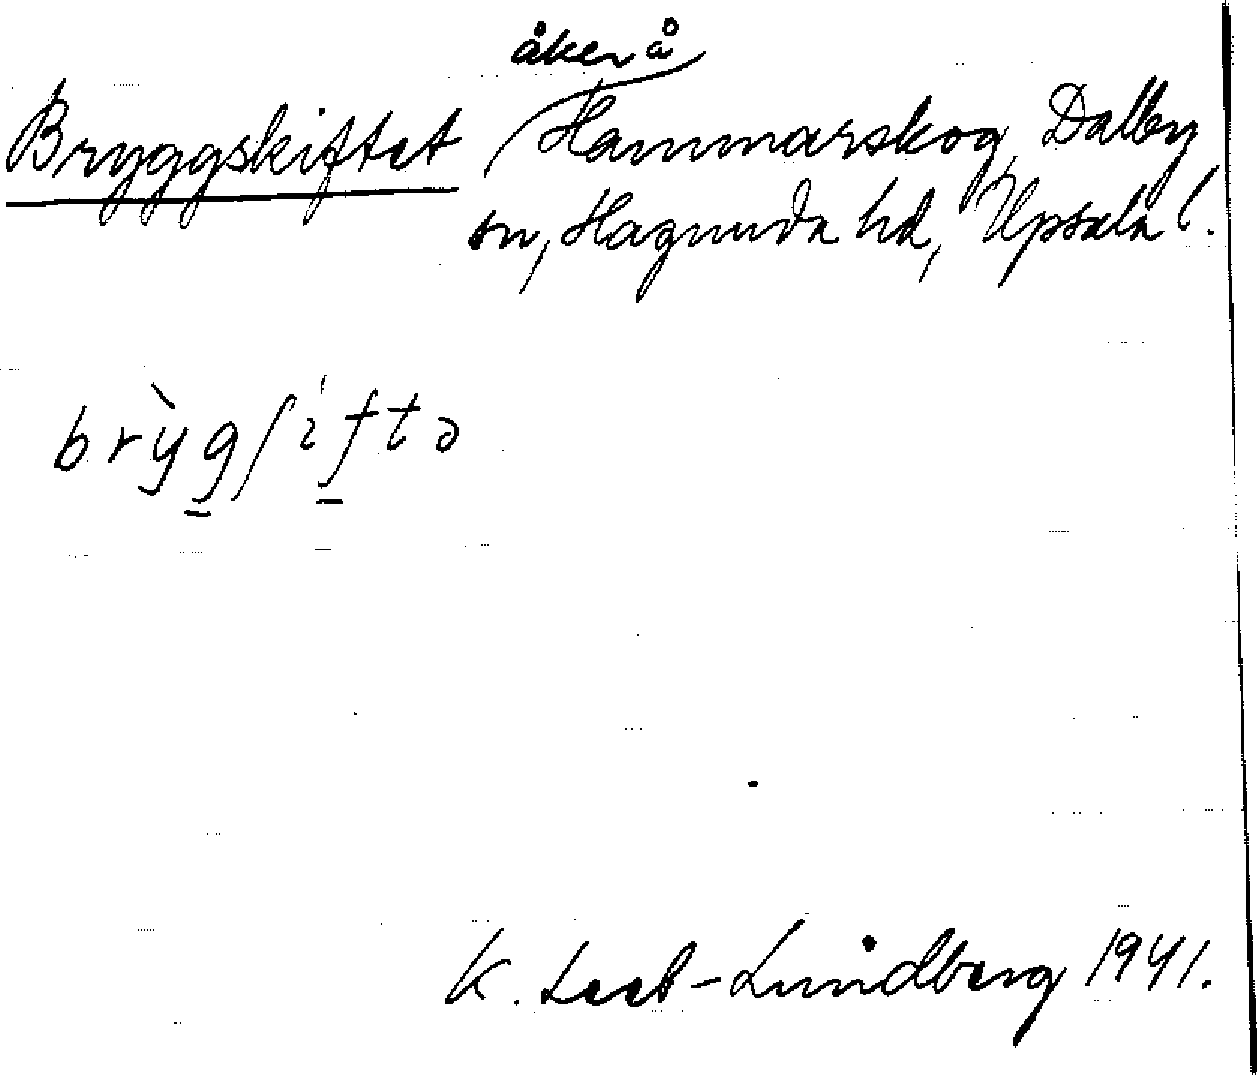 åker å
Bryggskiftet Hammarskog, Dalby
sn, Hagunda hd, Upsala l.
brỳgʃiftə
K. Leet-Lundberg 1941.